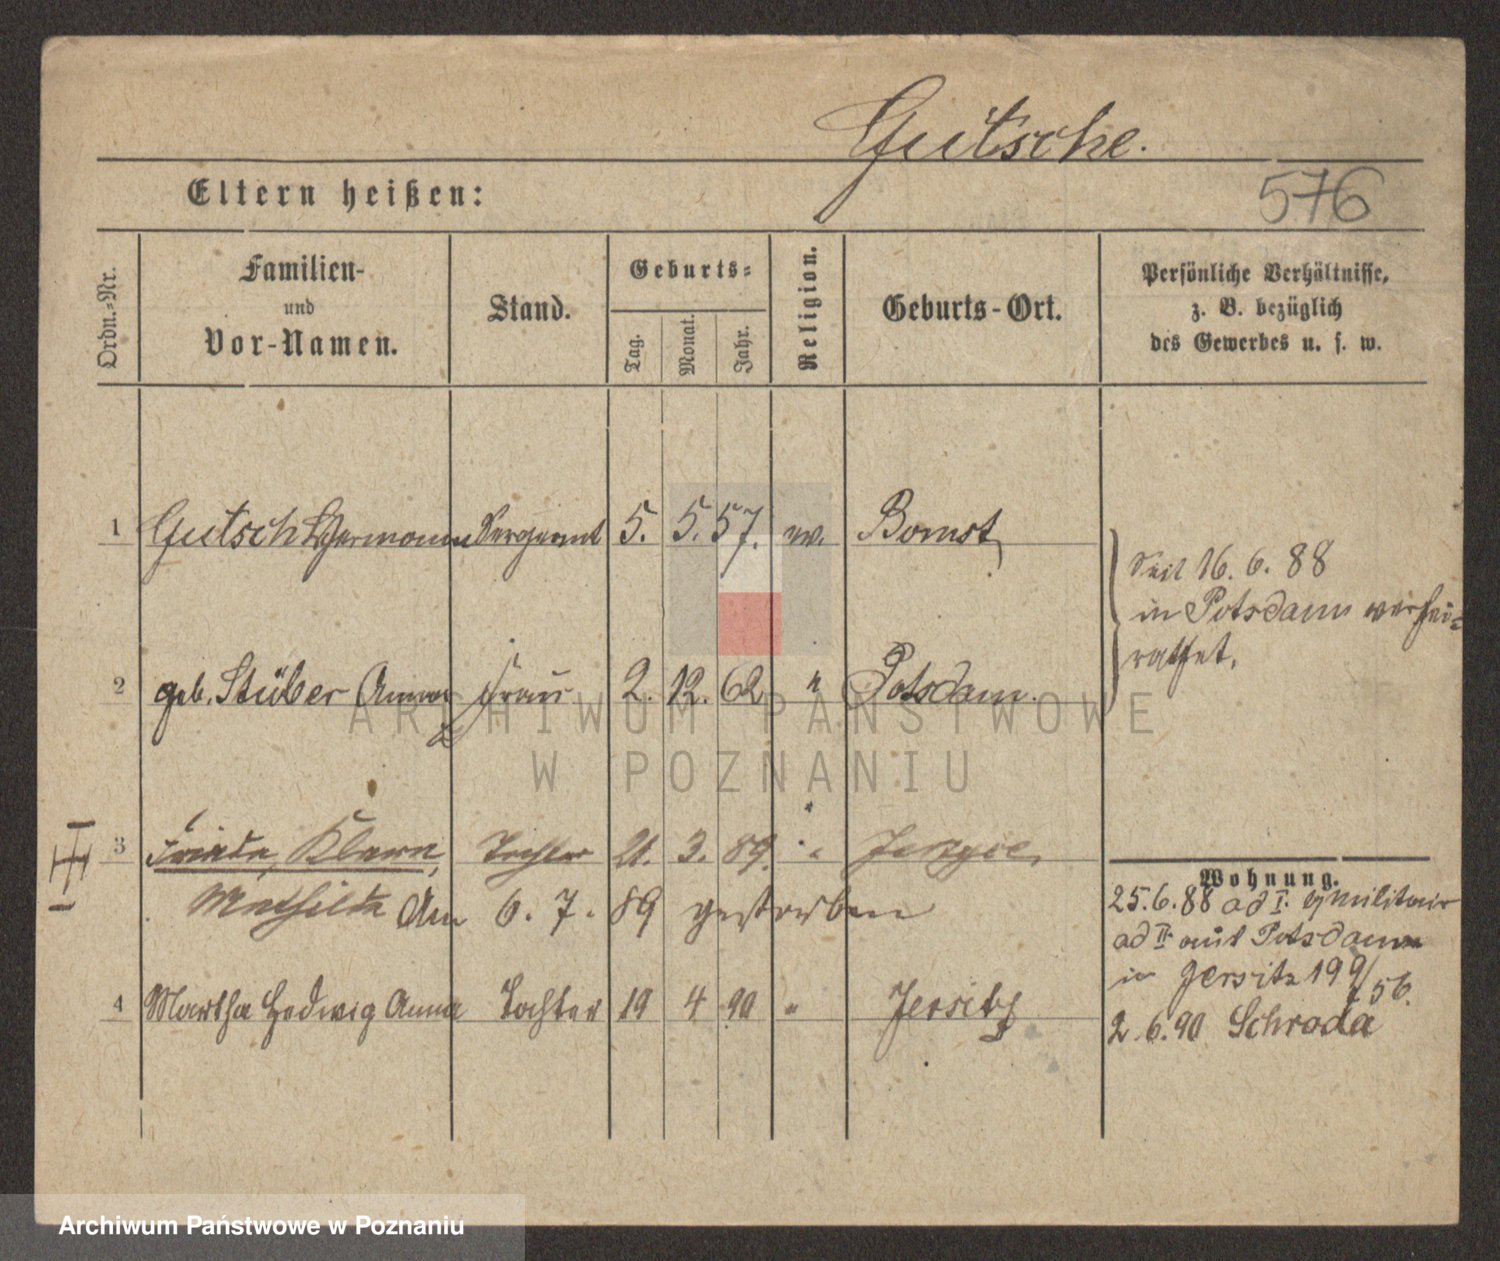 Gutsche.
576
Eltern heißen:
Ordn.-Nr.
Familien-
und
Vor-Namen.
Stand.
Geburts-
Tag.
Monat.
Jahr.
Religion.
Geburts-Ort.
Persönliche Verhältnisse,
z. B. bezüglich
des Gewerbes u. s. w.
1 Gutsch Hermann Sergeant 5. 5. 57. ev. Bomst
Seit 16. 6. 88
in Potsdam verhei-
rathet.
2 geb. Stüber Anna Frau 2. 12. 62 " Potsdam.
III
3 Frieda, Klara, Tochter 21. 3. 89. "
Mathilda Am 6. 7. 89 gestorben
Wohnung.
25.6.88 ad I. v Militair
ad II aus Potsdam
in Jersitz 199/56.
4 Martha Hedwig Anna Tochter 19 4 90 " Jersitz
2.6.90 Schroda
ARCHIWUM PAŃSTWOWE
W POZNANIU
Archiwum Państwowe w Poznaniu